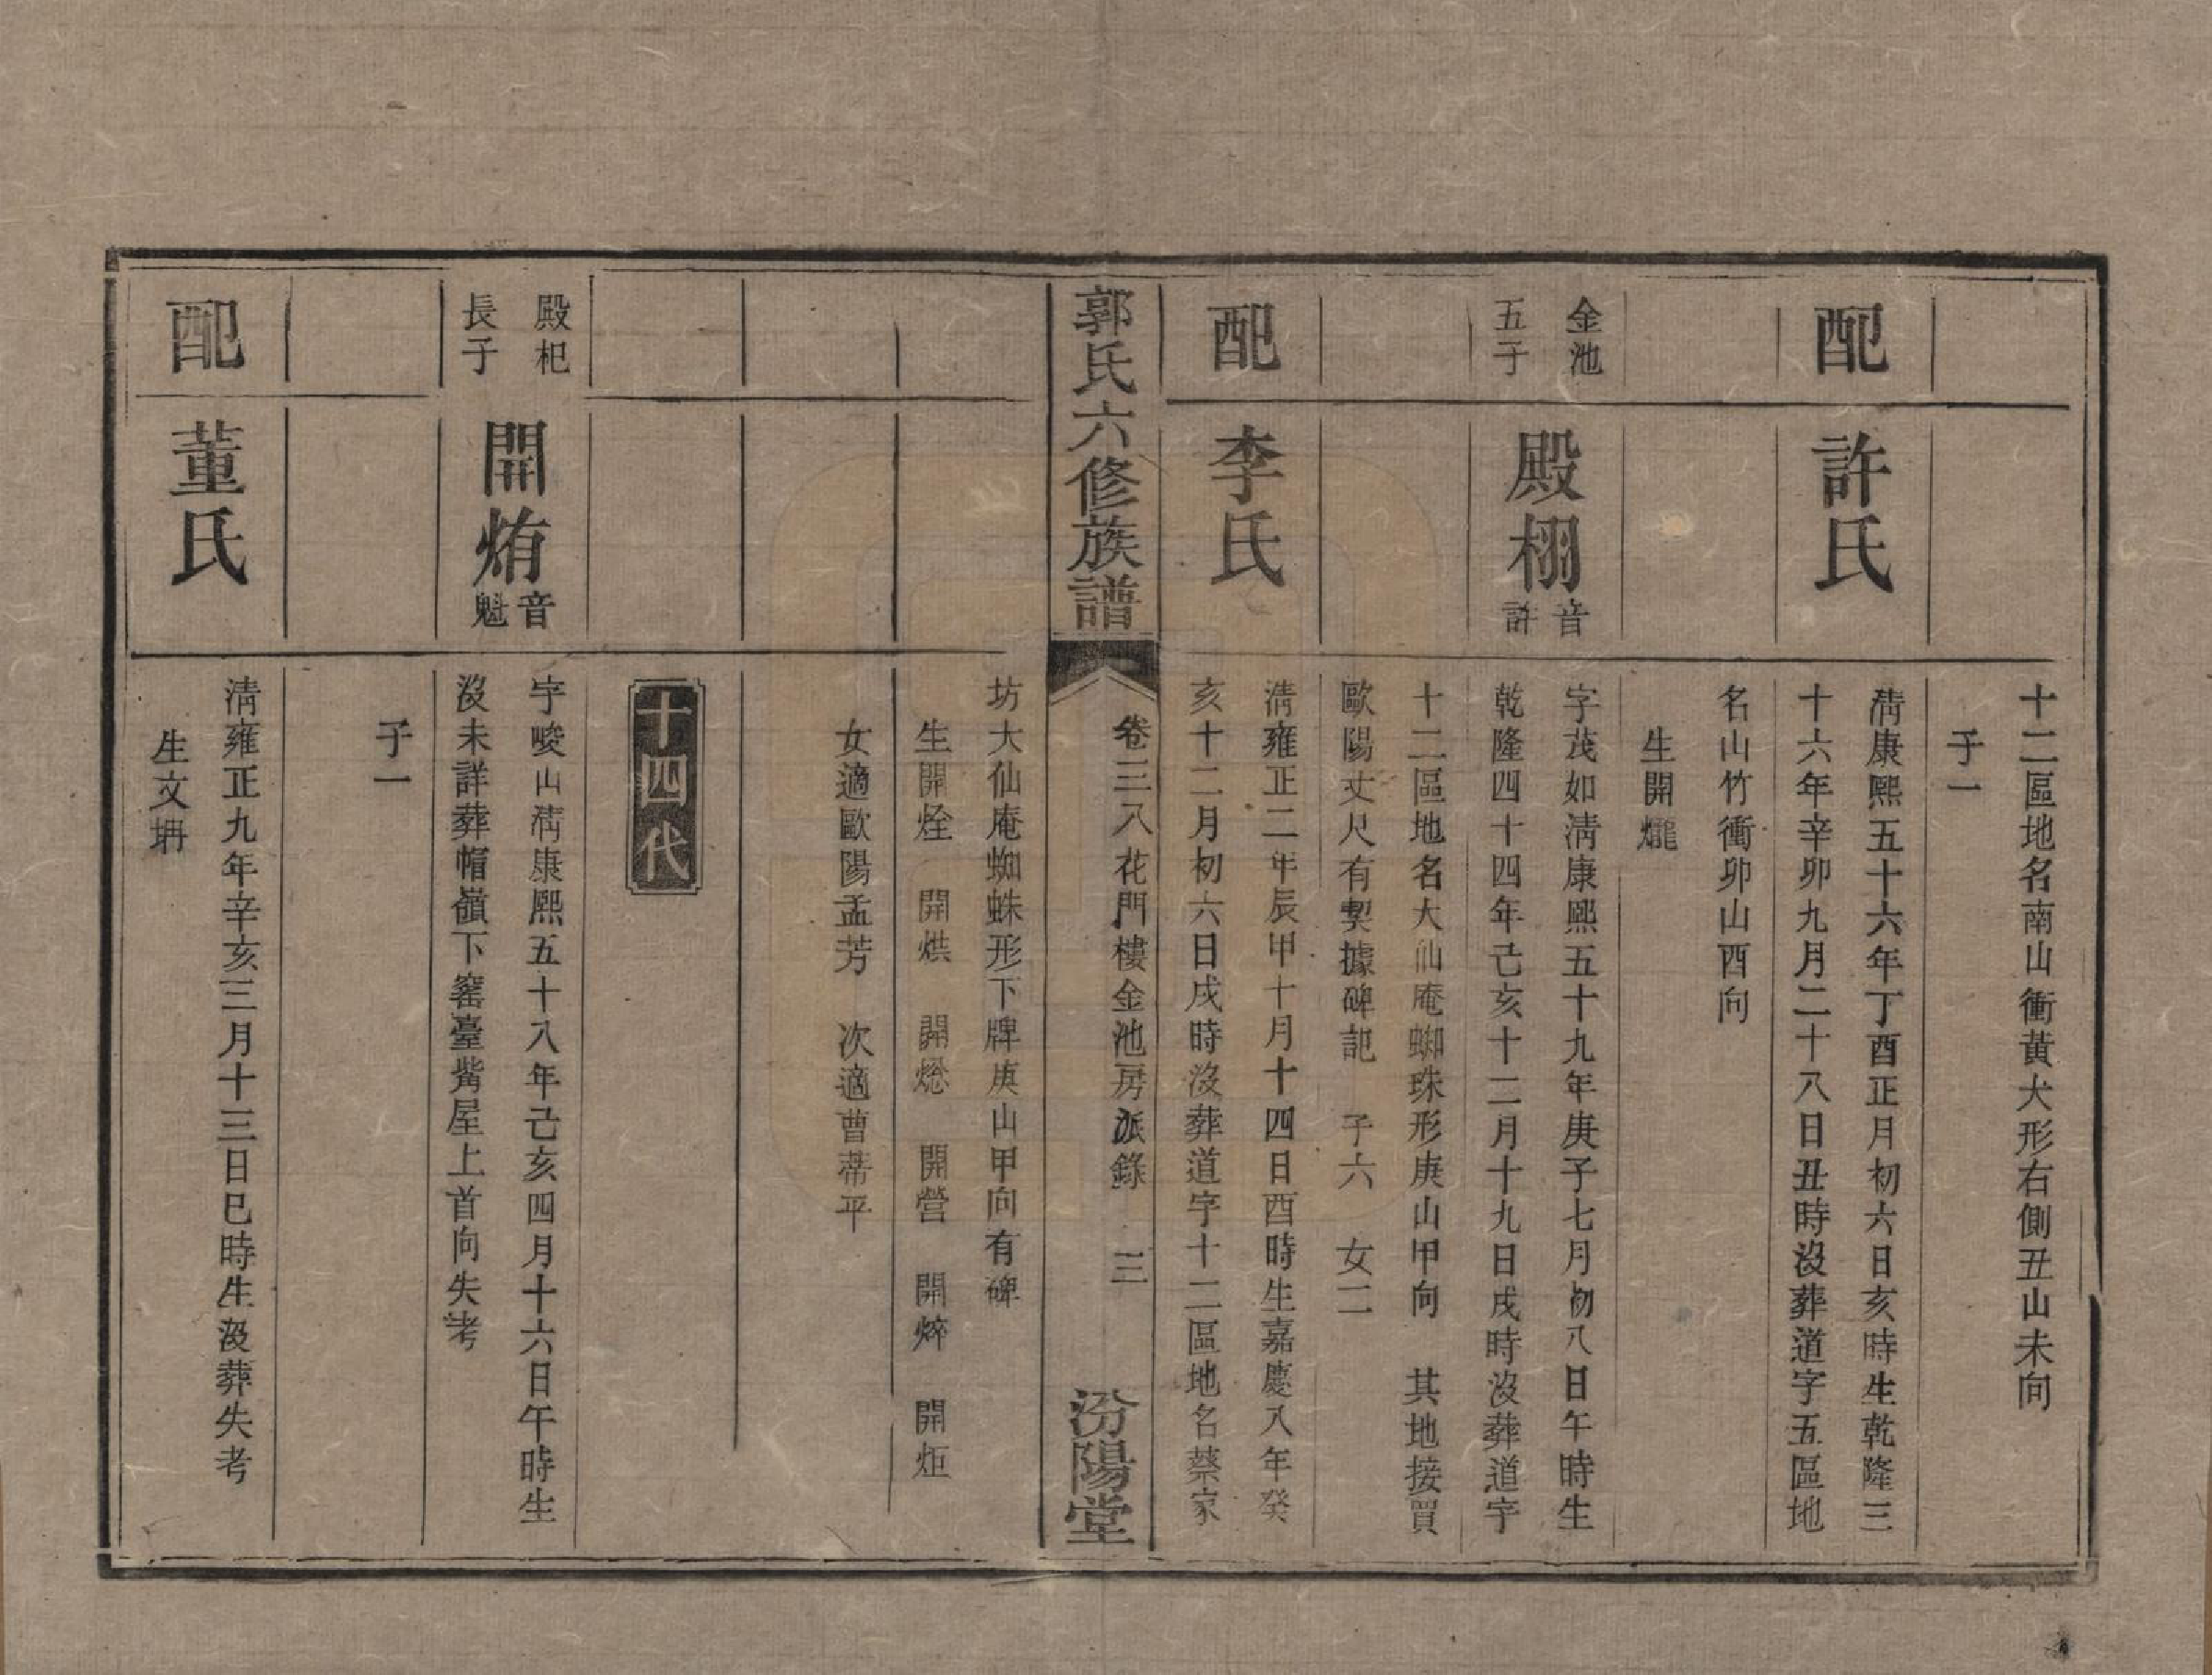 十二區地名南山衝黃犬形右側丑山未向
子一
配
許氏
清康熙五十六年丁酉正月初六日亥時生乾隆三
十六年辛卯九月二十八日丑時沒葬道字五區地
名山竹衝卯山酉向
生開爖
金池
五子
殿栩
音
許
字茂如清康熙五十九年庚子七月初八日午時生
乾隆四十四年己亥十二月十九日戌時沒葬道字
十二區地名大仙庵蜘珠形庚山甲向 其地接買
歐陽丈尺有契據碑記 子六 女二
配
李氏
清雍正二年辰甲十月十四日酉時生嘉慶八年癸
亥十二月初六日戌時沒葬道字十二區地名蔡家
郭氏六修族譜
卷三八花門樓金池房派錄 三
汾陽堂
坊大仙庵蜘蛛形下牌庚山甲向有碑
生開烇 開烘 開燪 開營 開焠 開炬
女適歐陽孟芳 次適曹蒂平
十四代
殿杞
長子
開烠
音
魁
字畯山清康熙五十八年己亥四月十六日午時生
沒未詳葬帽嶺下窰臺觜屋上首向失考
子一
配
董氏
清雍正九年辛亥三月十三日巳時生沒葬失考
生文坍